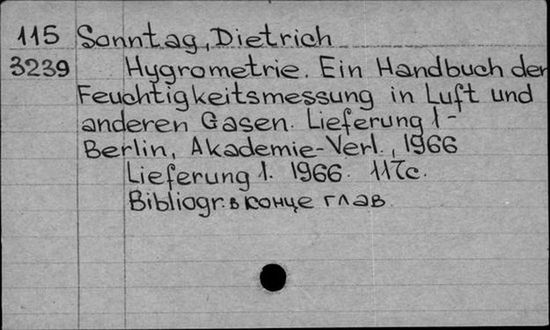 115 Sonntag, Dietrich
3239 Hygrometrie. Ein Handbuch der
Feuchtigkeitsmessung in Luft und
anderen Gasen. Lieferung 1-
Berlin, Akademie-Verl., 1966
Lieferung 1. 1966. 117с.
Bibliogr. в конце глав